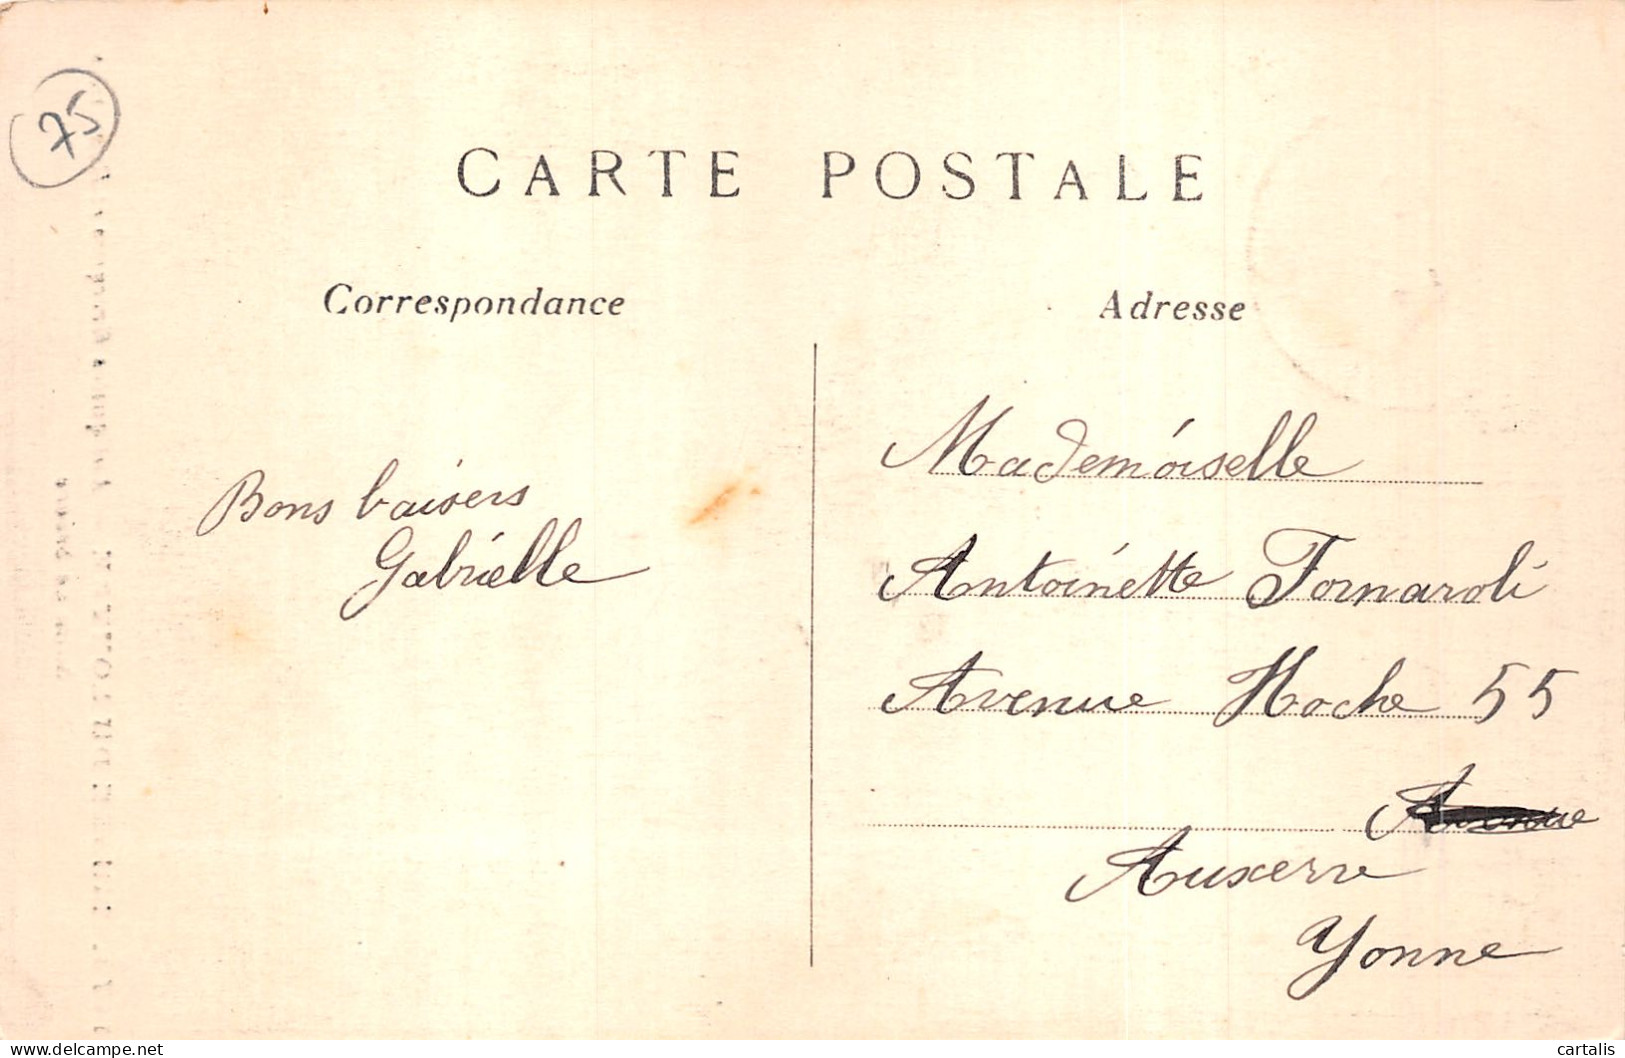 75
CARTE POSTALE
Correspondance
Adresse
Bons baisers
Gabrielle
Mademoiselle
Antoinette Fornaroli
Avenue Hoche 55
Auxerre
Yonne
www.delcampe.net
cartalis